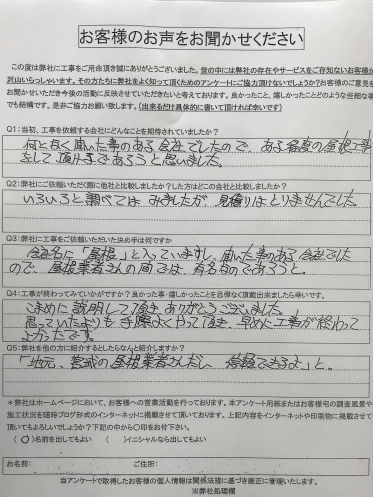 お客様のお声をお聞かせください
この度は弊社に工事をご用命頂き誠にありがとうございました。世の中には弊社の存在やサービスをご存知ないお客様が
沢山いらっしゃいます。その方たちに弊社をよく知って頂くためのアンケートにご協力頂けないでしょうか?お客様のご意見を
お聞かせいただき今後の活動に反映させていただきたいと考えております。良かったこと、嬉しかったことどのような些細な事
でも結構です。是非ご協力お願い致します。(出来るだけ具体的に書いて頂ければ幸いです)
Q1:当初、工事を依頼する会社にどんなことを期待されていましたか?
何となく聞いた事のある会社でしたので、ある程度の屋根工事
をして頂けるであろうと思いました。
Q2:弊社にご依頼いただく際に他社と比較しましたか?した方はどこの会社と比較しましたか?
いろいろと調べてはみましたが、見積りはとりませんでした。
Q3:弊社に工事をご依頼いただいた決め手は何ですか
会社名に「屋根」と入っていますし、聞いた事のある会社でした
ので、屋根業者さんの間では、有名なのであろうと。
Q4:工事が終わってみていかがですか?良かった事・嬉しかったことを忌憚なく頂戴出来ましたら幸いです。
こまめに説明して頂き、ありがとうございました。
思っていたよりも手際よくやって頂き、早めに工事が終わって
よかったです。
Q5:弊社を他の方に紹介するとしたらなんと紹介しますか?
「地元、宮城の屋根業者さんだし、信頼できるよ」と。
*弊社はホームページにおいて、お客様への営業活動を行っております。本アンケート用紙またはお客様宅の調査風景や
施工状況を随時ブログ形式のインターネットに掲載させて頂いております。上記内容をインターネットや印刷物に掲載させて
頂いてもよろしいでしょうか?下記の中から○印をお付下さい。
(○)名前を出してもよい ( )イニシャルなら出してもよい
お名前: ご住所:
当アンケートで取得したお客様の個人情報は関係法規に基づき厳正に管理いたします。
※弊社処理欄